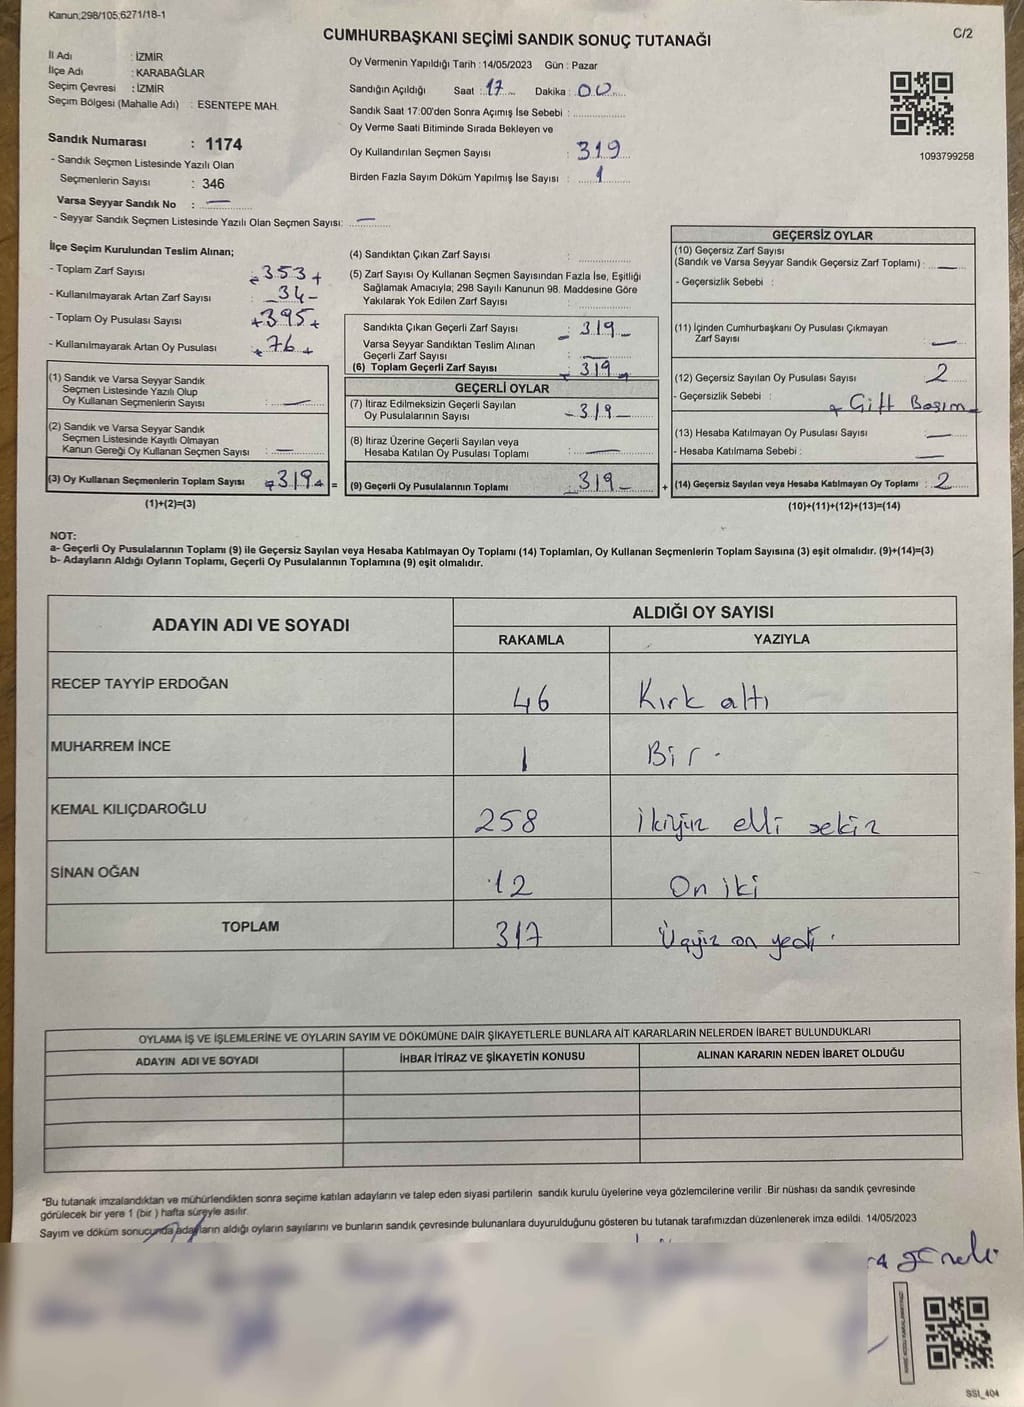 Kanun;298/105;6271/18-1
C/2
CUMHURBAŞKANI SEÇİMİ SANDIK SONUÇ TUTANAĞI
İl Adı : İZMİR
İlçe Adı : KARABAĞLAR
Seçim Çevresi : İZMİR
Seçim Bölgesi (Mahalle Adı) : ESENTEPE MAH.
Oy Vermenin Yapıldığı Tarih : 14/05/2023 Gün : Pazar
Sandığın Açıldığı Saat : 17 Dakika : 00
Sandık Saat 17:00'den Sonra Açımış İse Sebebi :
Oy Verme Saati Bitiminde Sırada Bekleyen ve
Oy Kullandırılan Seçmen Sayısı : 319
Birden Fazla Sayım Döküm Yapılmış İse Sayısı : 1
1093799258
Sandık Numarası : 1174
- Sandık Seçmen Listesinde Yazılı Olan
Seçmenlerin Sayısı : 346
Varsa Seyyar Sandık No : —
- Seyyar Sandık Seçmen Listesinde Yazılı Olan Seçmen Sayısı: —
İlçe Seçim Kurulundan Teslim Alınan;
- Toplam Zarf Sayısı : 353
- Kullanılmayarak Artan Zarf Sayısı : 34
- Toplam Oy Pusulası Sayısı : 395
- Kullanılmayarak Artan Oy Pusulası : 76
(1) Sandık ve Varsa Seyyar Sandık
Seçmen Listesinde Yazılı Olup
Oy Kullanan Seçmenlerin Sayısı : —
(2) Sandık ve Varsa Seyyar Sandık
Seçmen Listesinde Kayıtlı Olmayan
Kanun Gereği Oy Kullanan Seçmen Sayısı : —
(3) Oy Kullanan Seçmenlerin Toplam Sayısı 319 =
(1)+(2)=(3)
(4) Sandıktan Çıkan Zarf Sayısı :
(5) Zarf Sayısı Oy Kullanan Seçmen Sayısından Fazla İse, Eşitliği
Sağlamak Amacıyla; 298 Sayılı Kanunun 98. Maddesine Göre
Yakılarak Yok Edilen Zarf Sayısı :
Sandıkta Çıkan Geçerli Zarf Sayısı : 319
Varsa Seyyar Sandıktan Teslim Alınan
Geçerli Zarf Sayısı : —
(6) Toplam Geçerli Zarf Sayısı : 319
GEÇERLİ OYLAR
(7) İtiraz Edilmeksizin Geçerli Sayılan
Oy Pusulalarının Sayısı : 319
(8) İtiraz Üzerine Geçerli Sayılan veya
Hesaba Katılan Oy Pusulası Toplamı : —
(9) Geçerli Oy Pusulalarının Toplamı : 319 +
GEÇERSİZ OYLAR
(10) Geçersiz Zarf Sayısı
(Sandık ve Varsa Seyyar Sandık Geçersiz Zarf Toplamı) : —
- Geçersizlik Sebebi :
(11) İçinden Cumhurbaşkanı Oy Pusulası Çıkmayan
Zarf Sayısı : —
(12) Geçersiz Sayılan Oy Pusulası Sayısı : 2
- Geçersizlik Sebebi : Çift Basım
(13) Hesaba Katılmayan Oy Pusulası Sayısı : —
- Hesaba Katılmama Sebebi : —
(14) Geçersiz Sayılan veya Hesaba Katılmayan Oy Toplamı : 2
(10)+(11)+(12)+(13)=(14)
NOT:
a- Geçerli Oy Pusulalarının Toplamı (9) ile Geçersiz Sayılan veya Hesaba Katılmayan Oy Toplamı (14) Toplamları, Oy Kullanan Seçmenlerin Toplam Sayısına (3) eşit olmalıdır. (9)+(14)=(3)
b- Adayların Aldığı Oyların Toplamı, Geçerli Oy Pusulalarının Toplamına (9) eşit olmalıdır.
ADAYIN ADI VE SOYADI
ALDIĞI OY SAYISI
RAKAMLA YAZIYLA
RECEP TAYYİP ERDOĞAN 46 Kırk altı
MUHARREM İNCE 1 Bir
KEMAL KILIÇDAROĞLU 258 ikiyüz elli sekiz
SİNAN OĞAN 12 On iki
TOPLAM 317 Üçyüz on yedi
OYLAMA İŞ VE İŞLEMLERİNE VE OYLARIN SAYIM VE DÖKÜMÜNE DAİR ŞİKAYETLERLE BUNLARA AİT KARARLARIN NELERDEN İBARET BULUNDUKLARI
ADAYIN ADI VE SOYADI İHBAR İTİRAZ VE ŞİKAYETİN KONUSU ALINAN KARARIN NEDEN İBARET OLDUĞU
"Bu tutanak imzalandıktan ve mühürlendikten sonra seçime katılan adayların ve talep eden siyasi partilerin sandık kurulu üyelerine veya gözlemcilerine verilir. Bir nüshası da sandık çevresinde
görülecek bir yere 1 (bir ) hafta süreyle asılır.
Sayım ve döküm sonucunda adayların aldığı oyların sayılarını ve bunların sandık çevresinde bulunanlara duyurulduğunu gösteren bu tutanak tarafımızdan düzenlenerek imza edildi. 14/05/2023
SSI_404